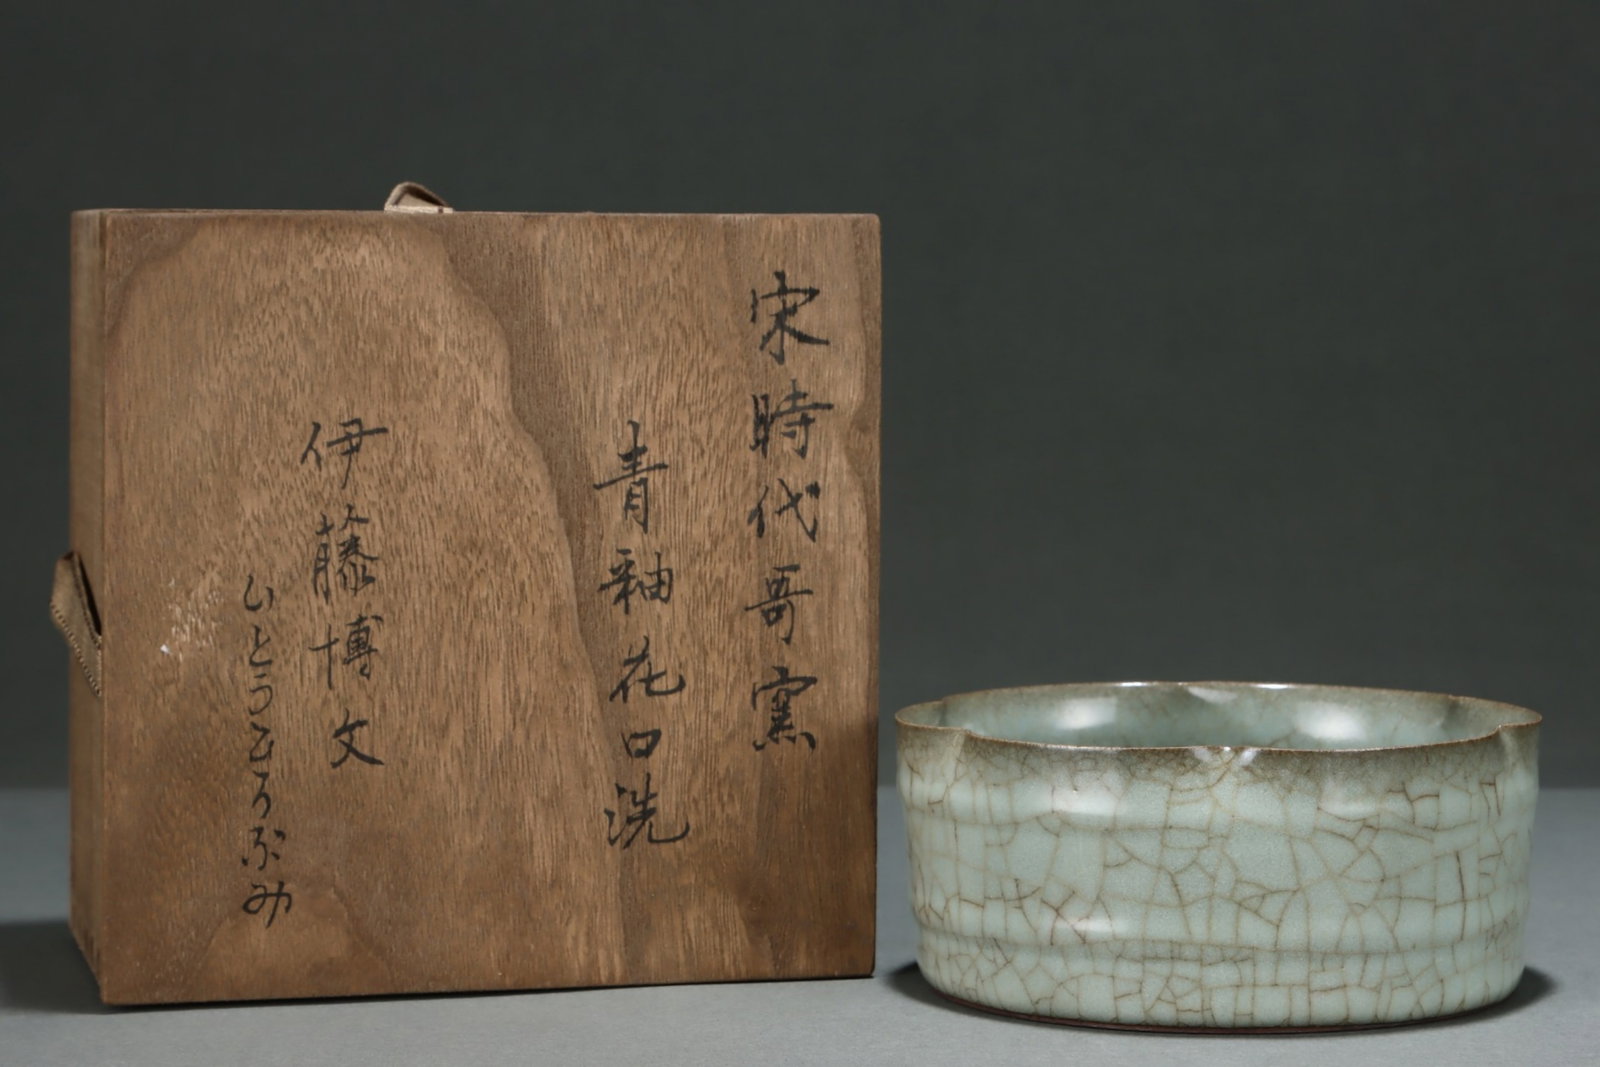 宋時代哥窯
青釉花口洗
伊藤博文
いとうひろぶみ